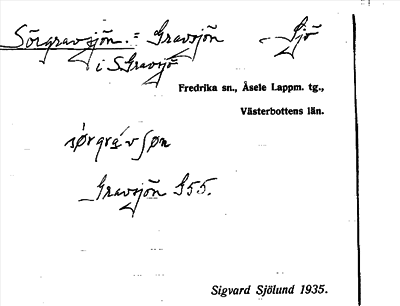 Sörgravsjön. = Gravsjön - Sjö
i S. Gravsjö
Fredrika sn., Åsele Lappm. tg.,
Västerbottens län.
sørgrávʃøn
Gravsjön S55.
Sigvard Sjölund 1935.